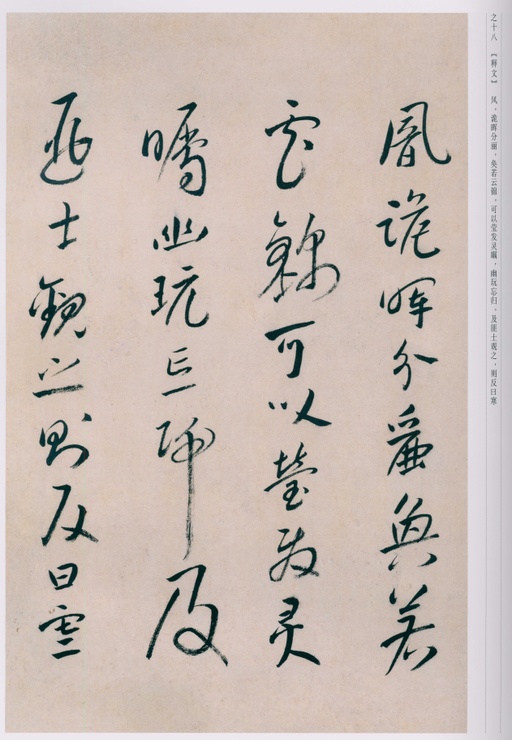 之十八 【释文】 风，诡晖分丽，奂若云锦，可以莹发灵瞩，幽玩忘归，及匪士观之，则反曰寒
風詭暉分麗奐若
雲錦可以瑩發灵
矚幽玩忘歸及
匪士觀之則反曰